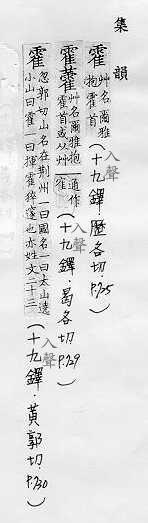 集韻
藿 艸名爾雅枹藿首（十九鐸．歷各切．P.725 入聲）
藿 藿 艸名爾雅枹藿首或从艸通作霍（十九鐸．曷各切．P.729 入聲）
霍 忽郭切山名在荆州一曰國名一曰大山遶小山曰霍一曰揮霍猝遽也亦姓文二十三（十九鐸．黃郭切．P.730 入聲）